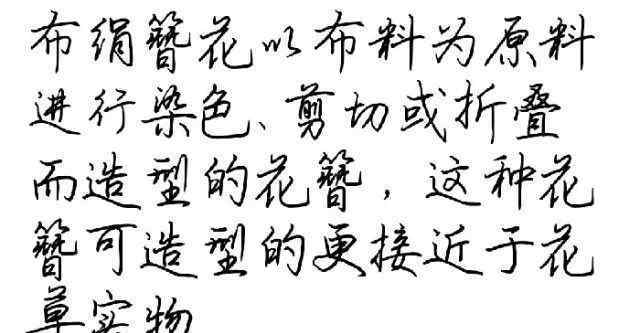 布绢簪花以布料为原料
进行染色、剪切或折叠
而造型的花簪，这种花
簪可造型的更接近于花
草实物